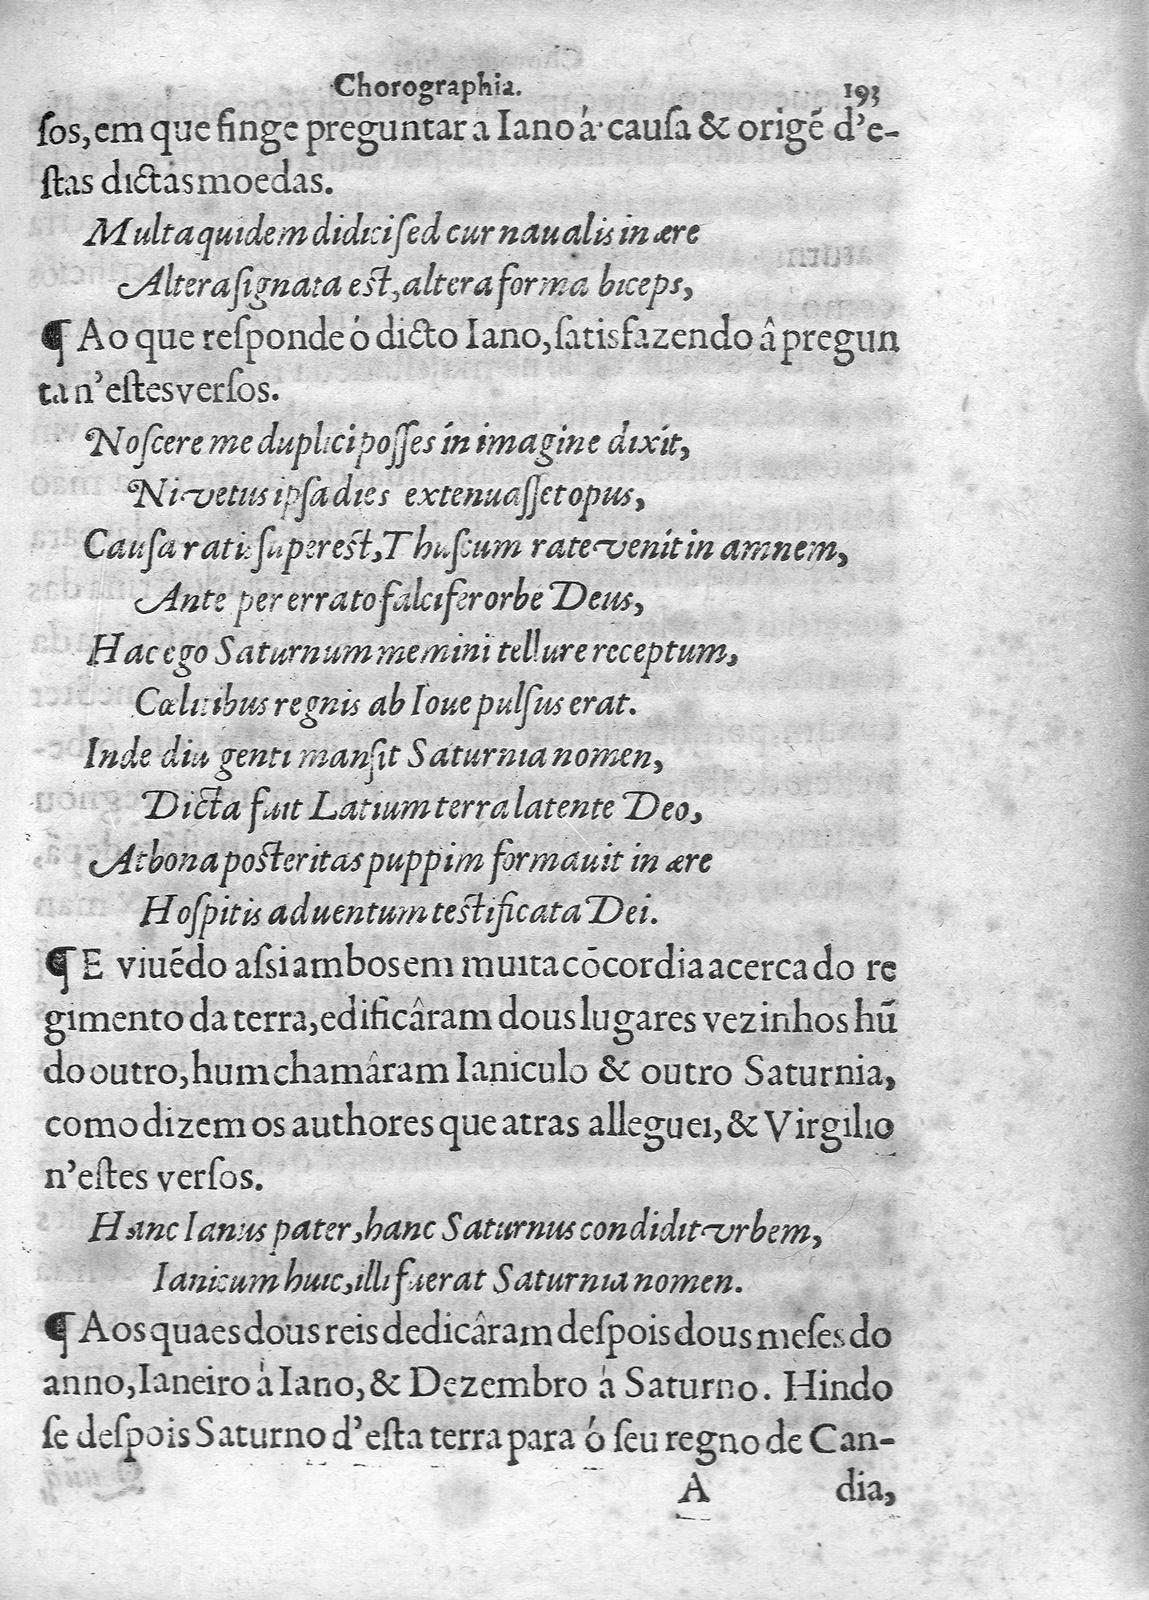 Chorographia. 193
ſos, em que finge preguntar a Iano á cauſa & origẽ d'e-
ſtas dictas moedas.
Multa quidem didici ſed cur naualis in ære
Altera ſignata est, altera forma biceps,
¶ Ao que reſponde ó dicto Iano, ſatisfazendo â pregun
ta n'eſtes verſos.
Noſcere me duplici poſſes in imagine dixit,
Ni vetus ipſa dies extenuaſſet opus,
Cauſa ratis ſuperest, Thuſcum rate venit in amnem,
Ante pererrato falcifer orbe Deus,
Hac ego Saturnum memini tellure receptum,
Cœlitibus regnis ab Ioue pulſus erat.
Inde diu genti manſit Saturnia nomen,
Dicta fuit Latium terra latente Deo,
At bona posteritas puppim formauit in ære
Hoſpitis aduentum testificata Dei.
¶ E viuẽdo aſsi ambos em muita cõcordia acerca do re
gimento da terra, edificâram dous lugares vezinhos hũ
do outro, hum chamâram Ianiculo & outro Saturnia,
como dizem os authores que atras alleguei, & Virgilio
n'eſtes verſos.
Hanc Ianus pater, hanc Saturnus condidit vrbem,
Ianicum huic, illi fuerat Saturnia nomen.
¶ Aos quaes dous reis dedicâram deſpois dous meſes do
anno, Ianeiro à Iano, & Dezembro à Saturno. Hindo
ſe deſpois Saturno d'eſta terra para ó ſeu regno de Can-
A dia,